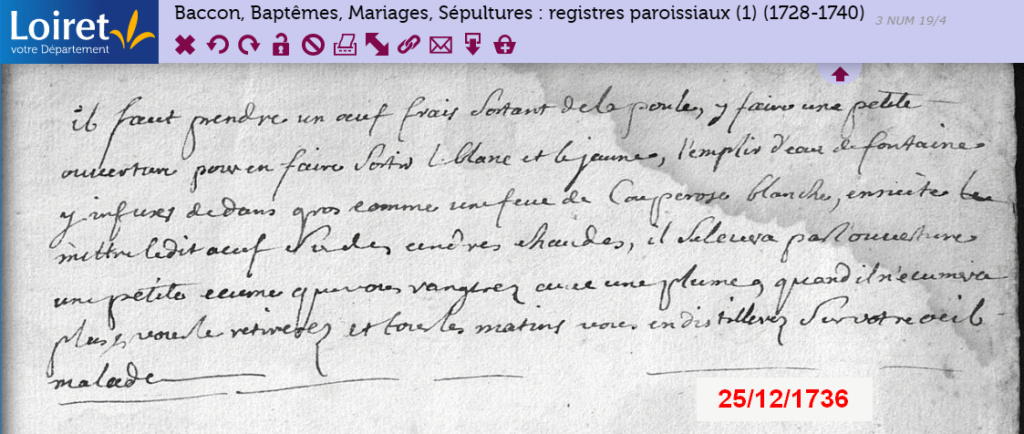 Loiret
votre Département
Baccon, Baptêmes, Mariages, Sépultures : registres paroissiaux (1) (1728-1740) 3 NUM 19/4
il faut prendre un œuf frais Sortant de la poule, y faire une petite
ouverture pour en faire Sortir le blanc et le jaune, l'emplir d'eau de fontaine
y infuses dedans gros comme une feve de Couperose blanche, ensuitte
mettre ledit œuf Sur des cendres chaudes, il Seleuera par l'ouverture
une petite ecume que vous rangerez avec une plume, quand il n'ecumera
plus, vous le retirerez et tous les matins vous en distillerez Sur votre oeil
malade
25/12/1736